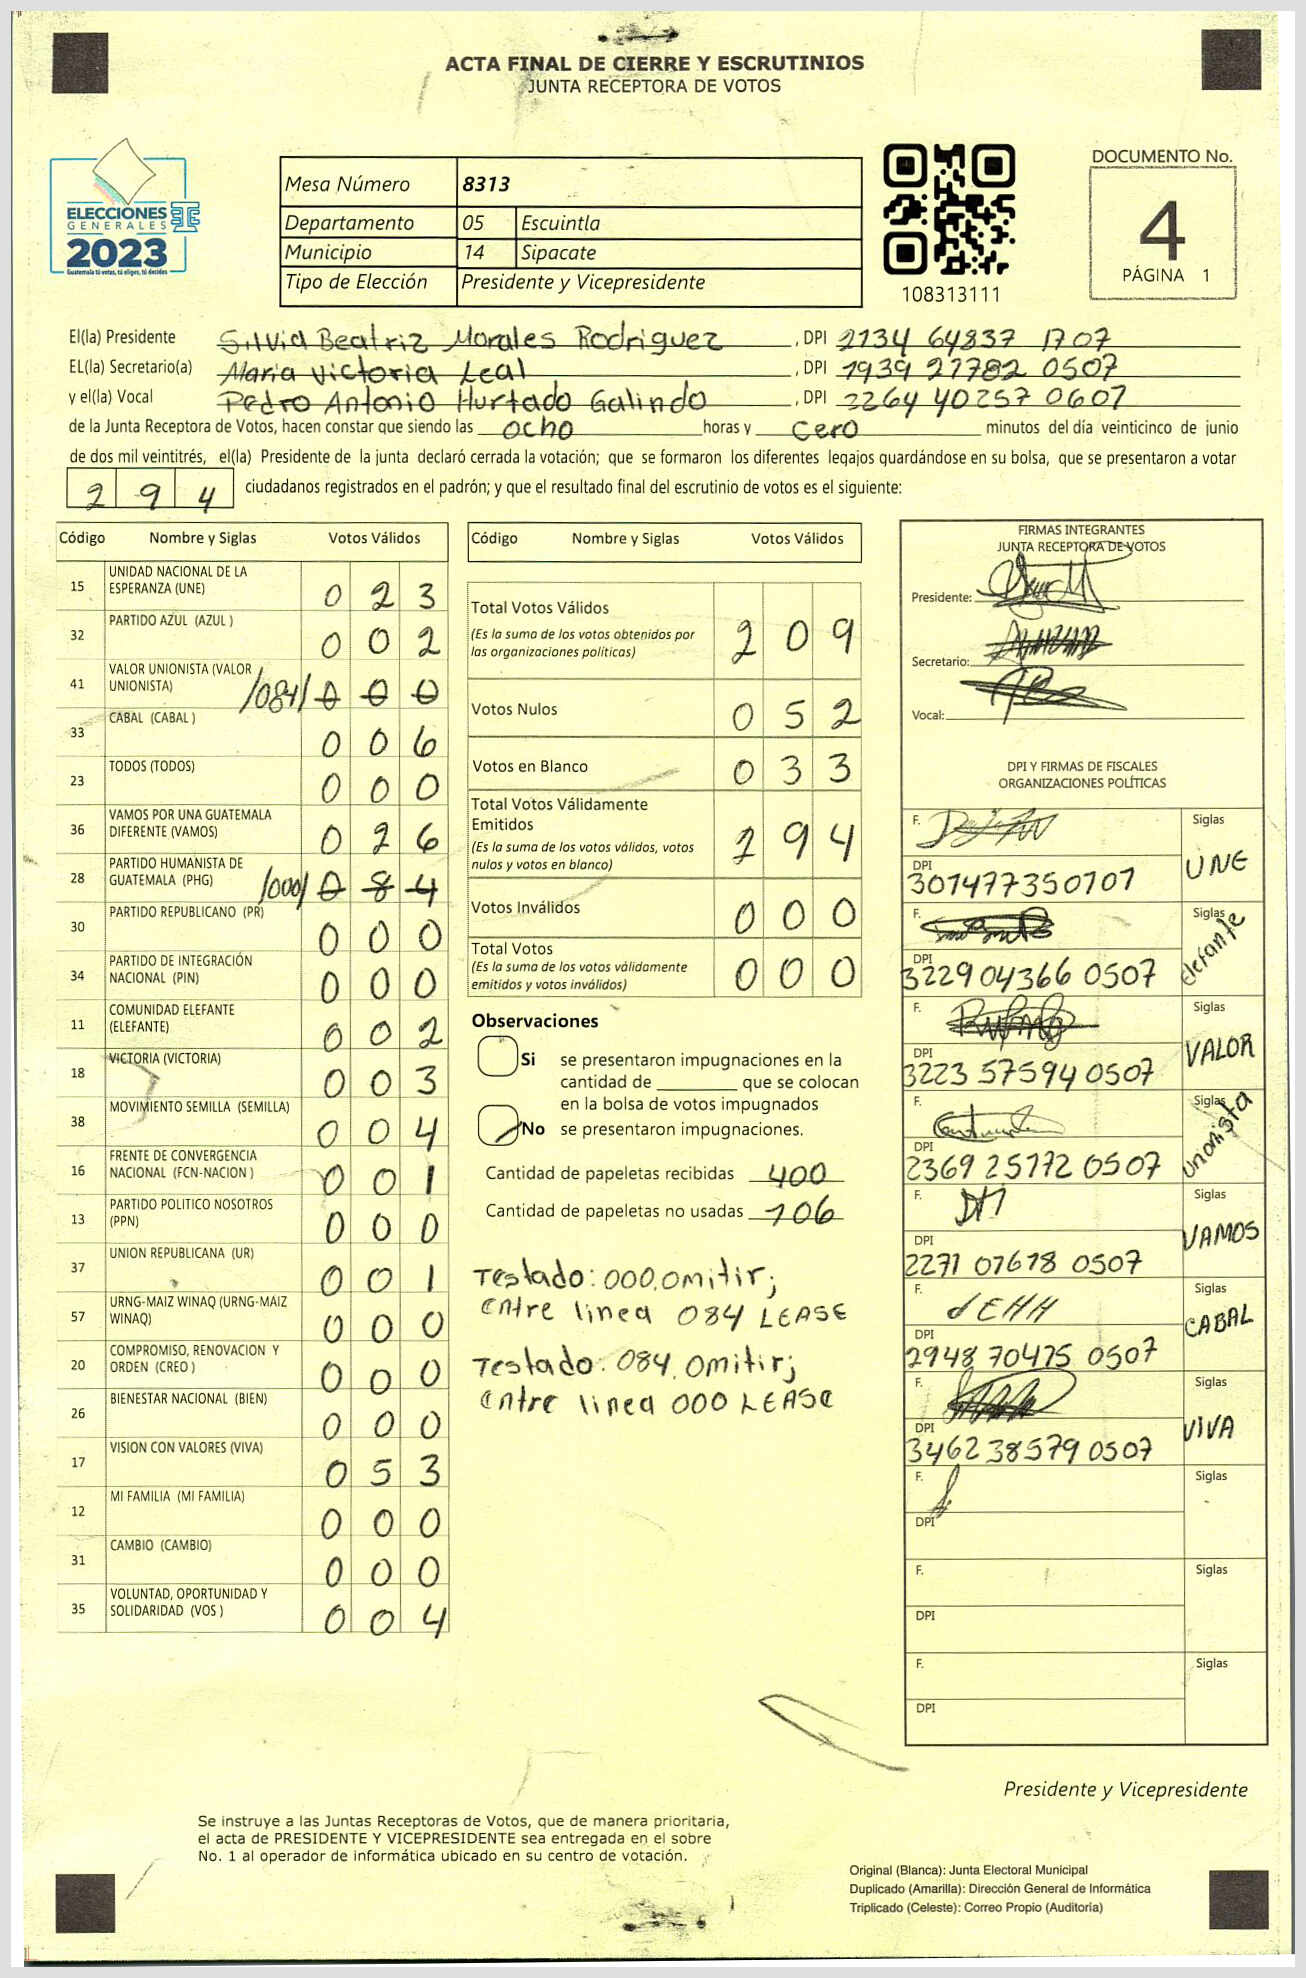 ACTA FINAL DE CIERRE Y ESCRUTINIOS
JUNTA RECEPTORA DE VOTOS
ELECCIONES
GENERALES
2023
Guatemala tú votas, tú eliges, tú decides
Mesa Número 8313
Departamento 05 Escuintla
Municipio 14 Sipacate
Tipo de Elección Presidente y Vicepresidente
108313111
DOCUMENTO No.
4
PÁGINA 1
El(la) Presidente Silvia Beatriz Morales Rodriguez, DPI 2134 64837 1707
EL(la) Secretario(a) Maria Victoria Leal, DPI 1939 27782 0507
y el(la) Vocal Pedro Antonio Hurtado Galindo, DPI 2264 40257 0607
de la Junta Receptora de Votos, hacen constar que siendo las ocho horas y cero minutos del día veinticinco de junio
de dos mil veintitrés, el(la) Presidente de la junta declaró cerrada la votación; que se formaron los diferentes legajos guardándose en su bolsa, que se presentaron a votar
2 9 4 ciudadanos registrados en el padrón; y que el resultado final del escrutinio de votos es el siguiente:
Código Nombre y Siglas Votos Válidos
15 UNIDAD NACIONAL DE LA ESPERANZA (UNE) 0 2 3
32 PARTIDO AZUL (AZUL ) 0 0 2
41 VALOR UNIONISTA (VALOR UNIONISTA) /084/ 0 0 0
33 CABAL (CABAL ) 0 0 6
23 TODOS (TODOS) 0 0 0
36 VAMOS POR UNA GUATEMALA DIFERENTE (VAMOS) 0 2 6
28 PARTIDO HUMANISTA DE GUATEMALA (PHG) /000/ 0 8 4
30 PARTIDO REPUBLICANO (PR) 0 0 0
34 PARTIDO DE INTEGRACIÓN NACIONAL (PIN) 0 0 0
11 COMUNIDAD ELEFANTE (ELEFANTE) 0 0 2
18 VICTORIA (VICTORIA) 0 0 3
38 MOVIMIENTO SEMILLA (SEMILLA) 0 0 4
16 FRENTE DE CONVERGENCIA NACIONAL (FCN-NACION ) 0 0 1
13 PARTIDO POLITICO NOSOTROS (PPN) 0 0 0
37 UNION REPUBLICANA (UR) 0 0 1
57 URNG-MAIZ WINAQ (URNG-MAIZ WINAQ) 0 0 0
20 COMPROMISO, RENOVACION Y ORDEN (CREO ) 0 0 0
26 BIENESTAR NACIONAL (BIEN) 0 0 0
17 VISION CON VALORES (VIVA) 0 5 3
12 MI FAMILIA (MI FAMILIA) 0 0 0
31 CAMBIO (CAMBIO) 0 0 0
35 VOLUNTAD, OPORTUNIDAD Y SOLIDARIDAD (VOS ) 0 0 4
Código Nombre y Siglas Votos Válidos
Total Votos Válidos 2 0 9
(Es la suma de los votos obtenidos por
las organizaciones políticas)
Votos Nulos 0 5 2
Votos en Blanco 0 3 3
Total Votos Válidamente
Emitidos 2 9 4
(Es la suma de los votos válidos, votos
nulos y votos en blanco)
Votos Inválidos 0 0 0
Total Votos 0 0 0
(Es la suma de los votos válidamente
emitidos y votos inválidos)
Observaciones
Si se presentaron impugnaciones en la
cantidad de ________ que se colocan
en la bolsa de votos impugnados
No se presentaron impugnaciones.
Cantidad de papeletas recibidas 400
Cantidad de papeletas no usadas 106
Testado: 000.Omitir;
Entre linea 084 LEASE
Testado: 084.Omitir;
Entre linea 000 LEASE
FIRMAS INTEGRANTES
JUNTA RECEPTORA DE VOTOS
Presidente:
Secretario:
Vocal:
DPI Y FIRMAS DE FISCALES
ORGANIZACIONES POLÍTICAS
F. Siglas
DPI UNE
301477350707
F. Siglas
DPI Elefante
3229 04366 0507
F. Siglas
DPI VALOR
3223 57594 0507
F. Siglas
DPI Unonista
2369 25772 0507
F. Siglas
DPI VAMOS
2271 07678 0507
F. Siglas
DPI CABAL
2948 70475 0507
F. Siglas
DPI VIVA
3462 38579 0507
F. Siglas
DPI
F. Siglas
DPI
F. Siglas
DPI
Presidente y Vicepresidente
Se instruye a las Juntas Receptoras de Votos, que de manera prioritaria,
el acta de PRESIDENTE Y VICEPRESIDENTE sea entregada en el sobre
No. 1 al operador de informática ubicado en su centro de votación.
Original (Blanca): Junta Electoral Municipal
Duplicado (Amarilla): Dirección General de Informática
Triplicado (Celeste): Correo Propio (Auditoría)